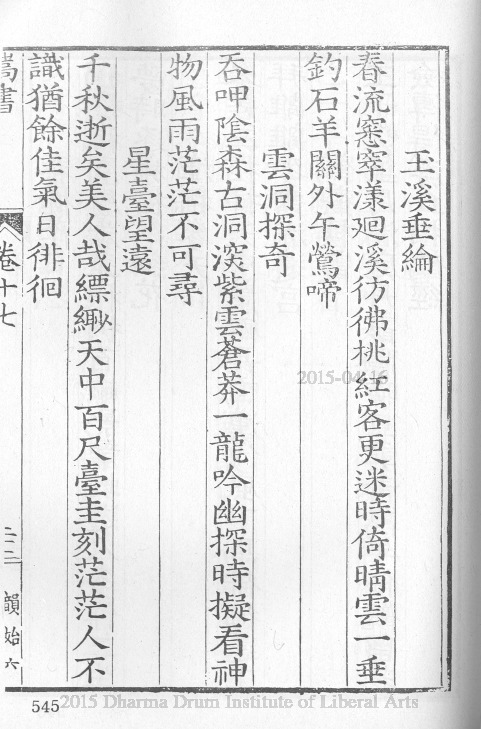 玉溪垂綸
春流窸窣漾迴溪彷彿桃紅客更迷時倚晴雲一垂
釣石羊關外午鶯啼
雲洞探奇
吞呷陰森古洞深紫雲蒼莽一龍吟幽探時擬看神
物風雨茫茫不可尋
星臺望遠
千秋逝矣美人哉縹緲天中百尺臺圭刻茫茫人不
識猶餘佳氣日徘徊
嵩書
卷十七
韻始六
545
2015-04-16
2015 Dharma Drum Institute of Liberal Arts